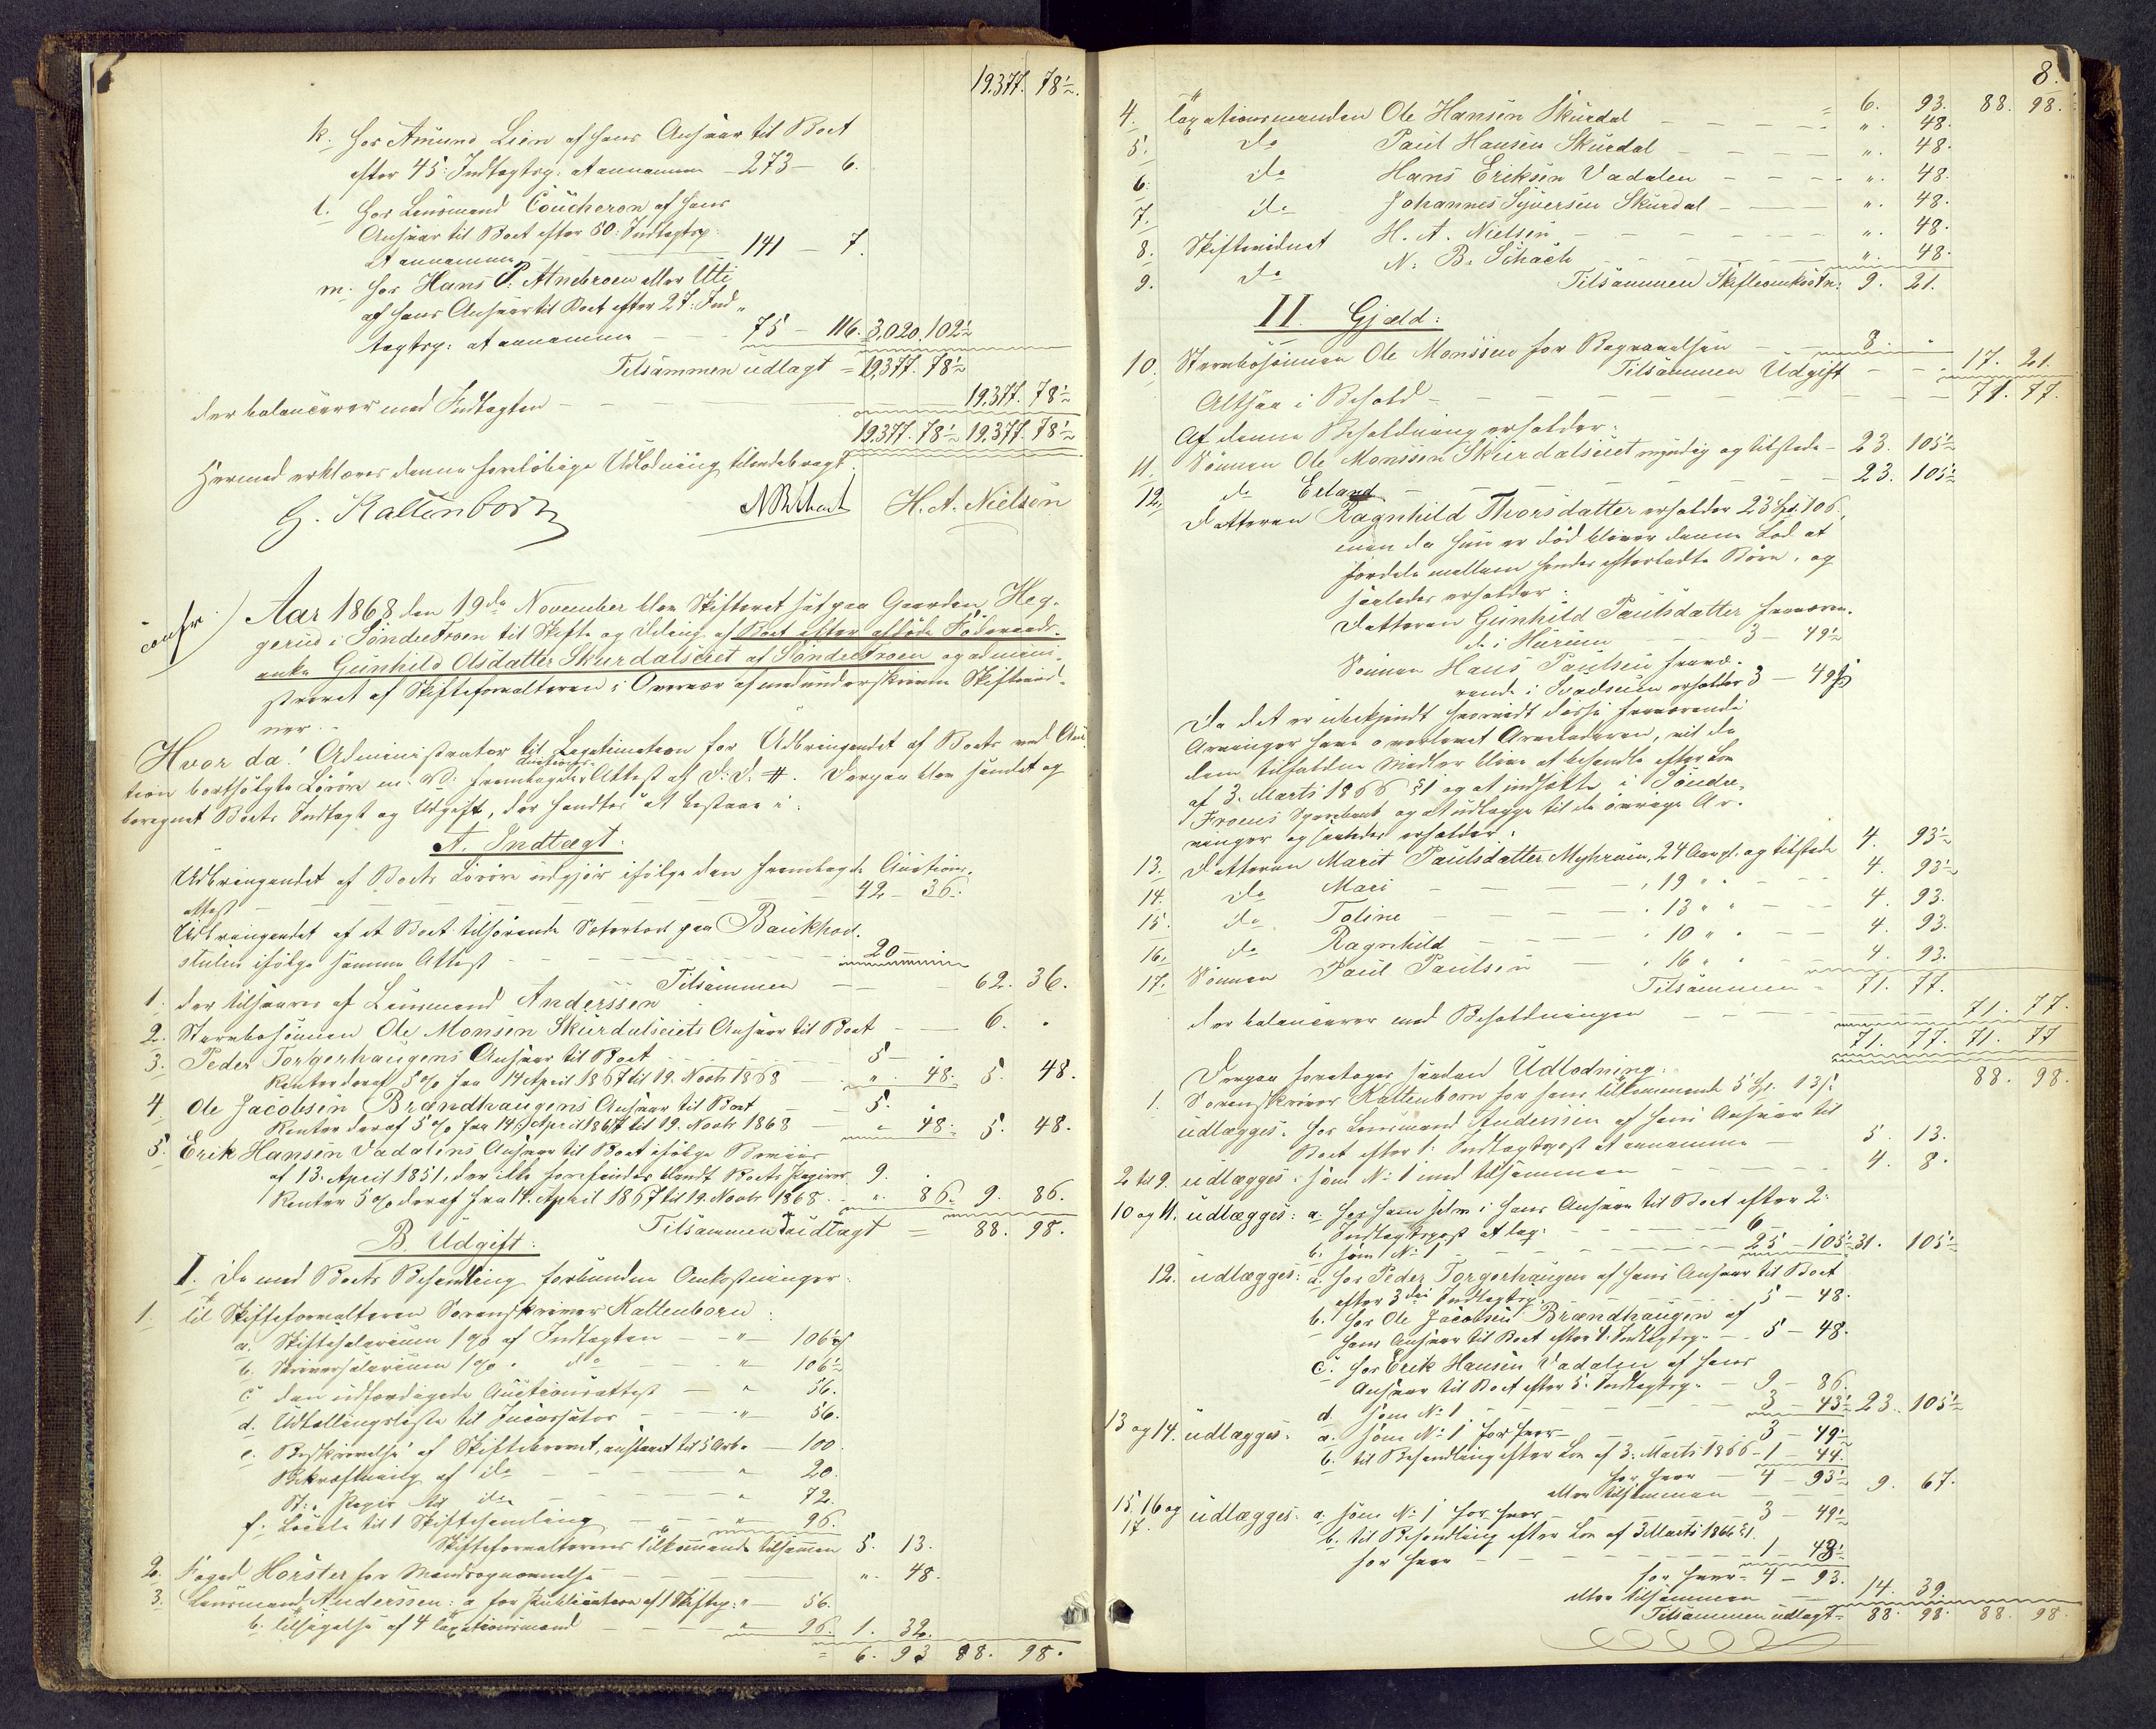 19,377. 78½.
k. hos Amund Lien af hans Ansvar til Boet
efter 45: Indtægtsp. at annamme – 273 – 6.
l. hos Lensmand Coucheron af hans
Ansvar til Boet efter 50: Indtægtsp:
at annamme 141 7.
m. hos Hans P. Alnebroen eller Uti
af hans Ansvar til Boet efter 27: Ind-
tægtsp: at annamme – – 75 – 116. 3,020. 102½
Tilsammen udlagt = 19,377. 78½
der balancerer med Indtægten – – – 19,377. 78½
19,377. 78½ 19,377. 78½
Hermed erklæres denne foreløbige Udlodning tilendebragt.
G. Kaltenborn N B Schach H. A. Nielsen
confr.
Aar 1868 den 19de November blev Skifteret sat paa Gaarden Heg-
gerud i Søndre Froen til Skifte og Deling af Boet efter afdøde Føderaads-
enke Gunhild Olsdatter Skurdalseiet af Søndre Froen og admini-
streret af Skifteforvalteren i Overvær af medunderskrevne Skiftevid-
ner. –
Hvor da! Administrator til Legitimation for Udbringendet af Boets ved Auc-
tion bortsolgte Løsøre m. V. fremlagde Auctions- Attest af D: D. #. Derpaa blev samlet og
beregnet Boets Indtægt og Udgift, der fandtes at bestaae i:
A. Indtægt:
Udbringendet af Boets Løsøre udgjør ifølge den fremlagte Auctions-
attest – – – 42 – 36.
Udbringendet af et Boet tilhørende Sæterbod paa Baukhol-
stulen ifølge samme Attest – – – 20 –
Tilsammen – – 62. 36.
1. der tilsvares af Lensmand Anderssen
2. Stervbosønnen Ole Monsen Skurdalseiets Ansvar til Boet – – 6. "
3. Peder Torgerhaugens Ansvar til Boet – – 5 –
Renter deraf 5 % fra 14 April 1867 til 19. Novbr 1868 – " . 48. 5. 48.
4 Ole Jacobsen Brændhaugens Ansvar til Boet – 5. "
Renter deraf 5 % fra 14 April 1867 til 19. Novbr 1868 – " 48. 5. 48.
5. Erik Hansen Vadalens Ansvar til Boet ifølge Beviis
af 13. April 1851, der ikke forefindes blandt Boets Papirer 9. .
Renter 5 % deraf fra 14. April 1867 til 19. Novbr 1868. – " . 86. 9. 86.
Tilsammen Indtægt = 88. 98.
B. Udgift:
I. De med Boets Behandling forbundne Omkostninger:
1. til Skifteforvalteren Sorenskriver Kaltenborn:
a. Skiftesalarium 1 % af Indtægten – – " – 106½
b. Skriversalarium 1 % " do – – " 106½
c den udfærdigede Auctionsattest – " 56.
d. Udtællingsliste til Incassator – – " 56.
e. Beskrivelse af Skiftebrevet, anslaaet til 5 Ark. – 100.
Bekræftning af do – – – " 20.
St: Papir til do – – – " 72.
f. Locale til 1 Skiftesamling – – " 96.
Skifteforvalterens Tilkommende tilsammen 5. 13.
2. Foged Horster for Mandsopnævnelse – – – " . 48.
3. Lensmand Anderssen: a for Publication af 1 Skiftep: " – 56.
b. Tilsigelse af 4 Taxationsmænd – – " 96. 1. 32.
= 6. 93 88. 98.
8.
= 6. 93. 88. 98.
4. Taxationsmanden Ole Hansen Skurdal – – – " . 48.
5. do Paul Hansen Skurdal – – – " . 48.
6. do Hans Eriksen Vadalen – – – " . 48.
7. do Johannes Syversen Skurdal – – " . 48.
8. Skiftevidnet H. A. Nielsen – – – " . 48.
9. do N. B. Schach – – – " . 48.
Tilsammen Skifteomkostn: 9. 21.
II. Gjæld:
10. Stervbosønnen Ole Monssen for Begravelsen – – 8. "
Tilsammen Udgift – – 17. 21.
Altsaa i Behold – – – 71. 77.
Af denne Beholdning erholder:
11. Sønnen Ole Monssen Skurdalseiet myndig og tilstede – 23. 105½
12. do Erland – – – 23. 105½
Datteren Ragnhild Thorsdatter erholder 23 Spd. 106,
men da hun er død bliver denne Lod at
fordele mellem hendes efterladte Børn, og
saaledes erholder:
Datteren Gunhild Paulsdatter fraværen-
de i Hurum – – 3 – 49½
Sønnen Hans Paulsen fravæ-
rende i erholder 3 – 49½
Da det er ubekjendt hvorvidt disse fraværende
Arvinger have overlevet Arveladeren, vil de
dem tilfaldne Midler blive at behandle efter Lov
af 3. Marts 1866 §1 og at indsætte i Søndre
Froens Sparebank og at udlægge til de øvrige Ar-
vinger og saaledes erholder:
13. Datteren Marit Paulsdatter Myhrum, 24 Aar gl. og tilstede 4. 93½
14. do Mari – – – " 19 " " – – 4. 93½
15. do Toline – – – " 13 " " – – 4. 93.
16. do Ragnhild – – – " 10 " " – – 4. 93.
17. Sønnen Paul Paulsen – – " 16 " " – – 4. 93.
Tilsammen = 71. 77.
der balancerer med Beholdningen – – – 71. 77.
71. 77. 71. 77
Derpaa foretoges saadan Udlodning: 88. 98.
1. Sorenskriver Kaltenborn for hans Tilkommende 5 Spd. 13 s.
udlægges: hos Lensmand Anderssen af hans Ansvar til
Boet efter 1: Indtægtspost at annamme – 5. 13.
2 til 9. udlægges: som No 1 med tilsammen – – – 4. 8.
10 og 11. udlægges: a. hos ham selv i hans Ansvar til Boet efter 2:
Indtægtspost – – – 6 –
b. som No 1 – – – 25 – 105½ 31. 105½
12. udlægges: a. hos Peder Torgerhaugen af hans Ansvar til Boet
efter 3die Indtægtsp. – – 5 – 48.
b. hos Ole Jacobsen Brændhaugen af
hans Ansvar til Boet efter 4. Indtægtsp. – – 5 – 48.
c. hos Erik Hansen Vadalen af hans
Ansvar til Boet efter 5. Indtægtsp. – 9 – 86.
d. som No 1 – – – 3 – 43½ 23. 105½
13 og 14. udlægges: a. som No 1 for hver – – 3 – 49½
b. til Behandling efter Lov af 3. Marts 1866 – 1 – 44.
for hver – 4 – 93½
eller tilsammen – – 9. 67.
15, 16 og 17. udlægges: a. som No 1 for hver – – 3 – 49½
b. til Behandling efter Lov af 3 Marts 1866 §1.
for hver – – – 1 – 43½
for hver = 4 – 93.
eller tilsammen – – 14. 39.
Tilsammen udlagt = 88. 98. 88. 98.